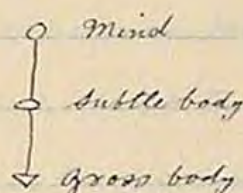 Mind
Subtle body
Gross body